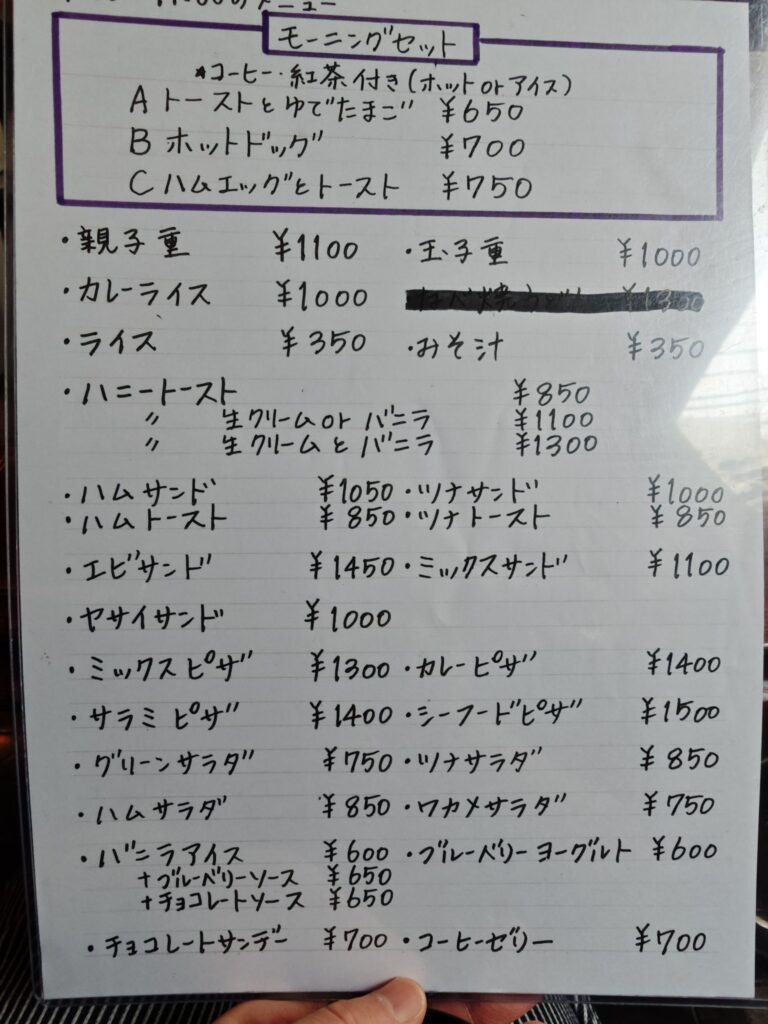 11:00のメニュー
モーニングセット
*コーヒー・紅茶付き(ホットorアイス)
A トーストとゆでたまご ¥650
B ホットドッグ ¥700
C ハムエッグとトースト ¥750
・親子重 ¥1100 ・玉子重 ¥1000
・カレーライス ¥1000
・ライス ¥350 ・おみそ汁 ¥350
・ハニートースト ¥850
〃 生クリームorバニラ ¥1100
〃 生クリームとバニラ ¥1300
・ハムサンド ¥1050 ・ツナサンド ¥1000
・ハムトースト ¥850 ・ツナトースト ¥850
・エビサンド ¥1450 ・ミックスサンド ¥1100
・ヤサイサンド ¥1000
・ミックスピザ ¥1300 ・カレーピザ ¥1400
・サラミピザ ¥1400 ・シーフードピザ ¥1500
・グリーンサラダ ¥750 ・ツナサラダ ¥850
・ハムサラダ ¥850 ・ワカメサラダ ¥750
・バニラアイス ¥600 ・ブルーベリーヨーグルト ¥600
+ブルーベリーソース ¥650
+チョコレートソース ¥650
・チョコレートサンデー ¥700 ・コーヒーゼリー ¥700